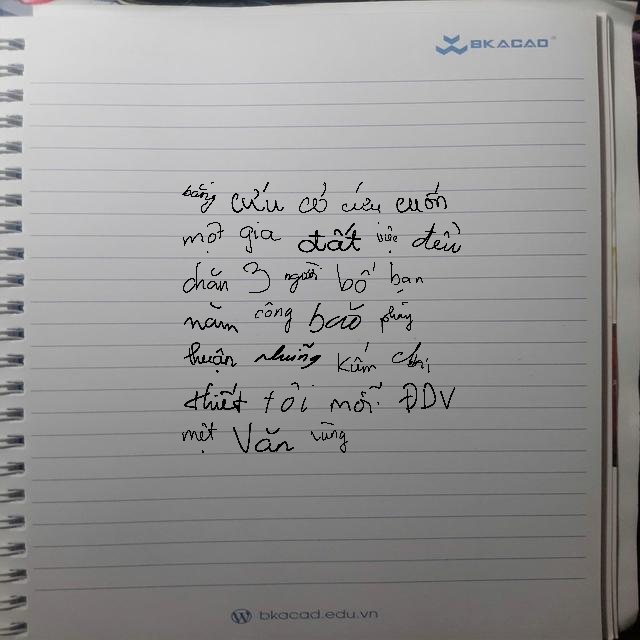 BKACAD
bằng cứu có cứu cuốn
một gia đất việc đều
chăn 3 người bố bạn
năm công bảo phây
thuận những kiếm chị
thiết tôi mỗi ĐDV
một Văn vững
bkacad.edu.vn